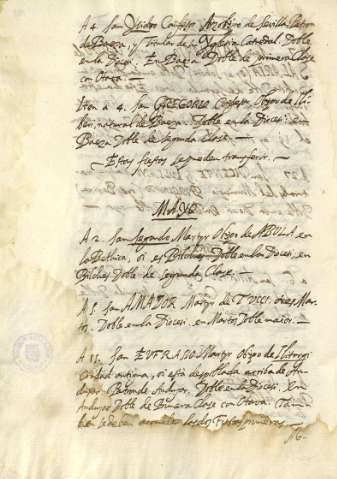 A 4 San Isidro Confessor Arzobispo de Sevilla Patron
de Baeza, y Titular de su Yglesia Catedral Doble
en la Dioci. En Baeza Doble de primera Clase
con Otava.
Iten a 4. San GREGORIO Confessor, Obispo de Ili-
beri, natural de Baeza. Doble en la Dioci: en
Baeza Doble de segunda Clase.
Estas fiestas se pueden transferir.
MAYO
A 2 San Segundo Martyr Obispo de ABULA en
la Bethica, si es Bilches, Doble en la Dioci, en
Bilches Doble de Segunda Clase.
A 5 San AMADOR Martyr de TUCCI, que es Mar-
tos. Doble en la Dioci. en Martos Doble maior.
A 15 San EUFRASIO Martyr Obispo de Iliturgi
Ciudad antigua, si está despoblada arriba de An-
duxar: Patron de Anduxar. Doble en la Dioci. en
Anduxar Doble de Primera Clase con Otava. Tam-
bien la deben los dos Fiestas primeras